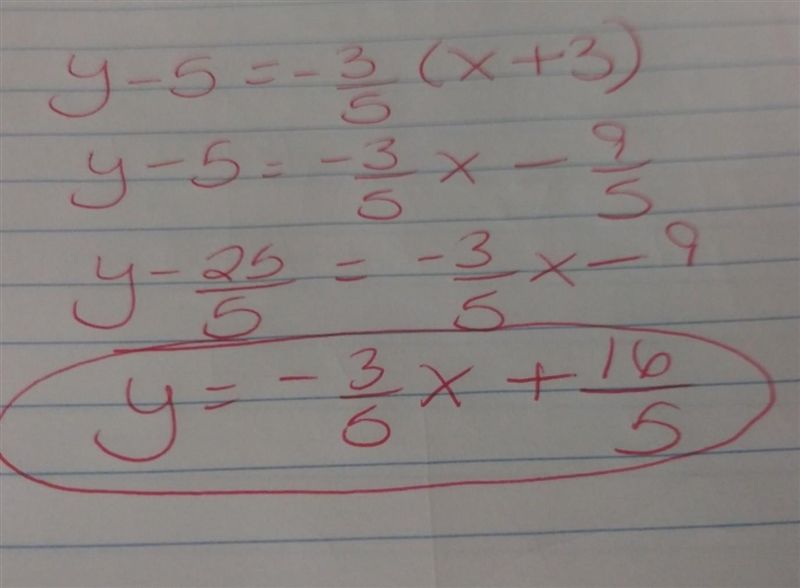 y - 5 = -3/5 (x + 3)
y - 5 = -3/5 x - 9/5
y - 25/5 = -3/5 x - 9
y = -3/5 x + 16/5